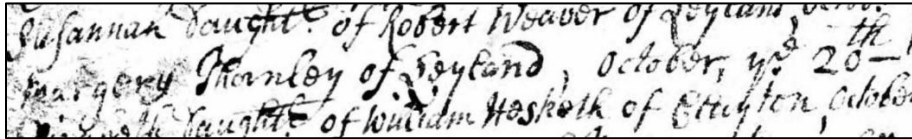 Susannah Daught: of Robert Weaver of Leyland, Octob:
Margery Thornley of Leyland, October, ye 20th
Daught: of William Hesketh of October